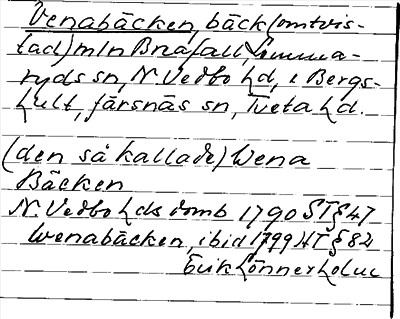 Venabäcken, bäck (omtvis-
tad) mln Bråfall, Lomma-
ryds sn, N. Vedbo hd, o Bergs-
hult, Järsnäs sn, Tveta hd.
(den så kallade) Wena
Bäcken
N. Vedbo hds domb 1790 ST § 47
Wenabäcken, ibid 1799 HT § 82
Erik Lönnerholm